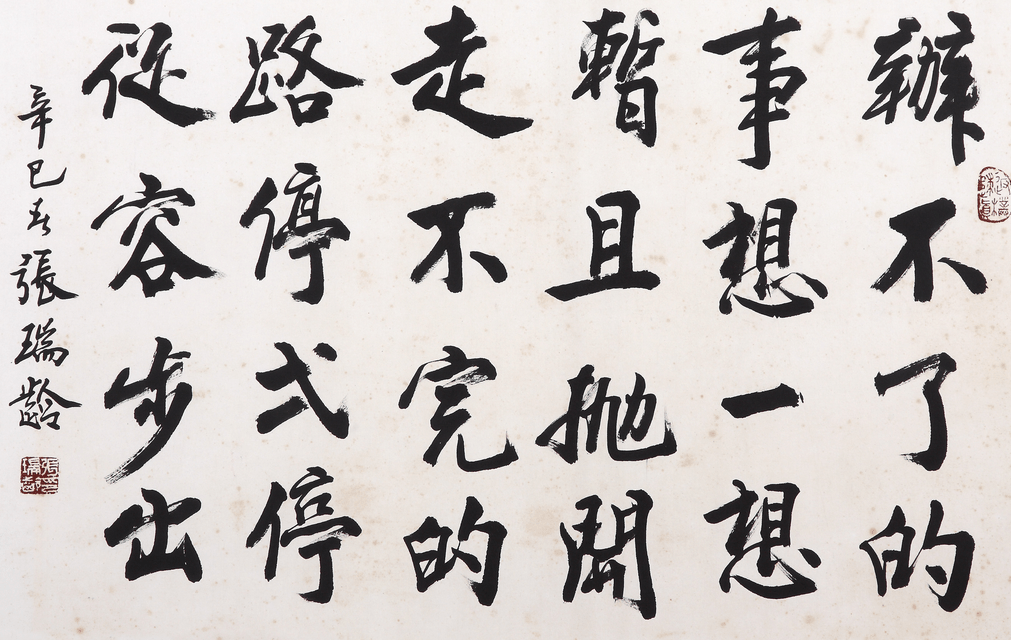 辦不了的
事想一想
暫且拋開
走不完的
路停弌停
從容步出
辛巳春張瑞齡